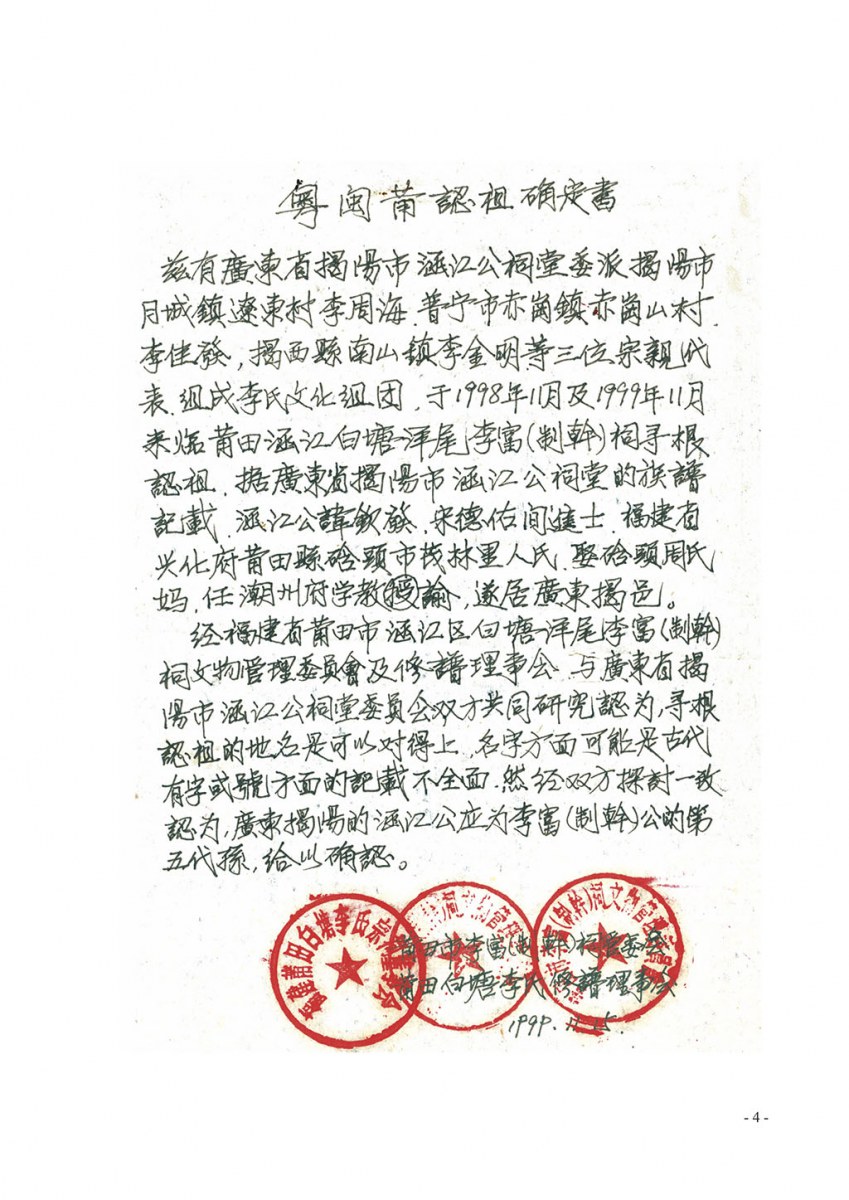 粤闽莆認祖确定書
兹有廣東省揭陽市涵江公祠堂委派揭陽市
月城鎮遼東村李周海.普宁市赤崗鎮赤崗山村.
李佳發,揭西縣南山鎮李金明等三位宗親代
表.组成李氏文化组团.于1998年11月及1999年11月
来临莆田涵江白塘洋尾李富(制幹)祠寻根
認祖.据廣東省揭陽市涵江公祠堂的族譜
記載.涵江公諱欽發.宋德佑间進士.福建省
兴化府莆田縣硆頭市茂林里人氏.娶硆頭周氏
妈.任潮州府学教授諭,遂居廣東揭邑。
经福建省莆田市涵江区白塘洋尾李富(制幹)
祠文物管理委員會及修譜理事会.与廣東省揭
陽市涵江公祠堂委員会双方共同研究認为,寻根
認祖的地名是可以对得上.名字方面可能是古代
有字或號方面的記載不全面.然经双方探討一致
認为,廣東揭陽的涵江公应为李富(制幹)公的第
五代孫,给以确認。
莆田市李富(制幹)祠管委会
莆田白塘李氏修譜理事会
1999.11.15.
福建莆田白塘李氏宗
(制幹)祠文物管理
富(制幹)祠文物管理委員會
- 4 -